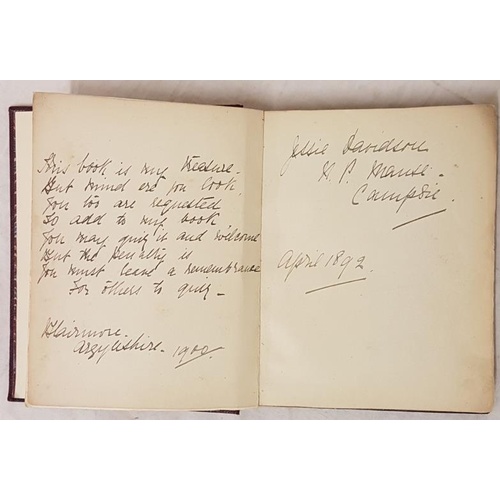 This book is my treasure.
But mind ere you look,
You too are requested
To add to my book
You may quiz it and welcome
But the penalty is
You must leave a remembrance
For others to quiz -
Blairmore.
Argyllshire. 1900
Jessie Davidson
U. P. Manse.
Campsie.
April 1892.